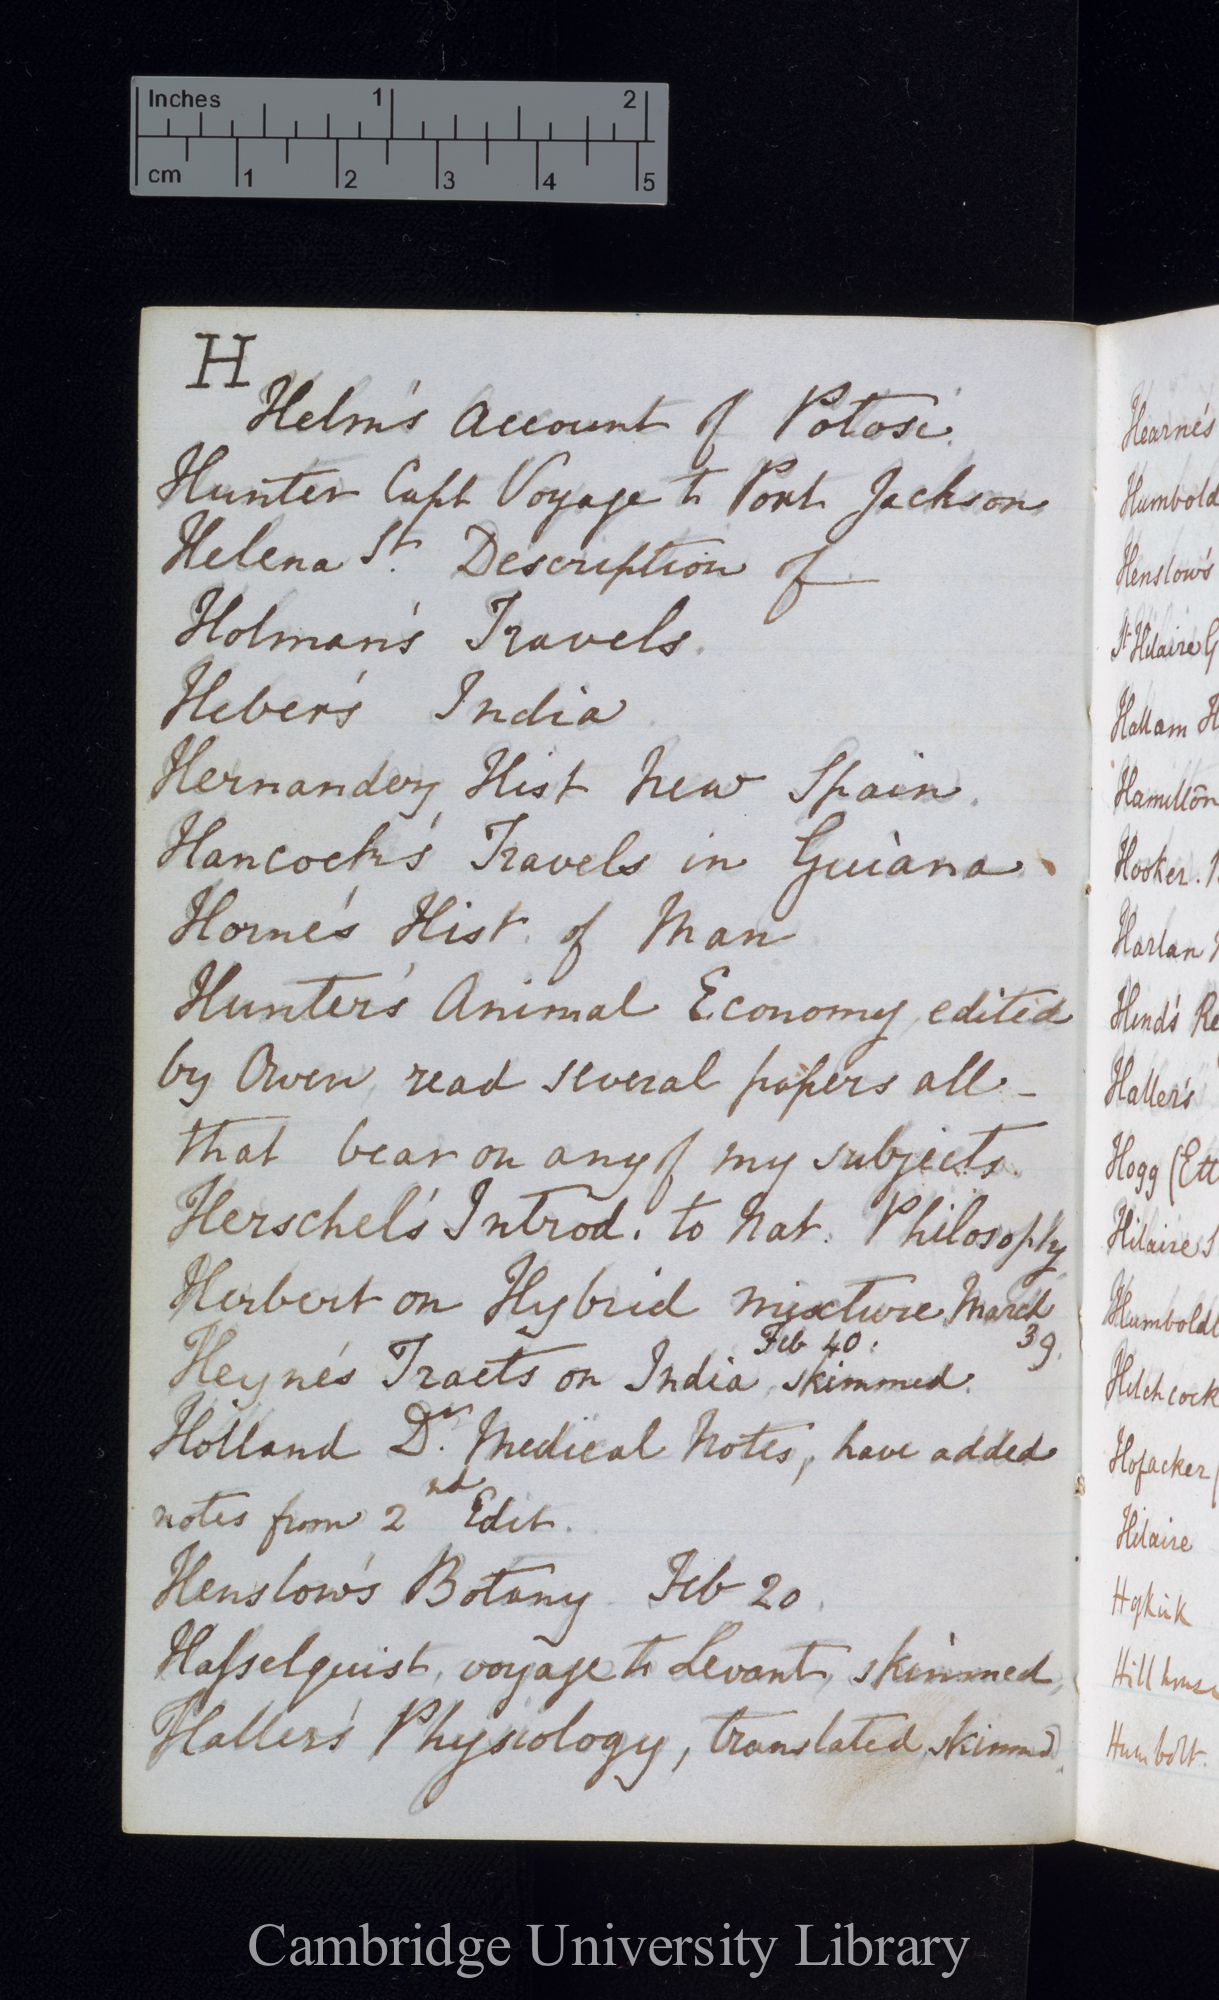 Inches 1 2
cm 1 2 3 4 5
H
Helm's Account of Potosi.
Hunter Capt Voyage to Port Jackson
Helena St. Description of
Holman's Travels.
Heber's India
Hernandez Hist New Spain.
Hancock's Travels in Guiana
Horne's Hist. of Man
Hunter's Animal Economy, edited
by Owen, read several papers all-
that bear on any of my subjects.
Herschel's Introd. to Nat. Philosophy
Herbert on Hybrid mixture March
39.
Feb 40:
Heyne's Tracts on India, skimmed.
Holland Dr. Medical Notes, have added
notes from 2nd Edit.
Henslow's Botany Feb 20.
Hasselquist, voyage to Levant, skimmed,
Haller's Physiology, translated, skimmd.
Hearne's
Humbold
Henslow's
St Hilaire G
Hallam H
Hamilton
Hooker.
Harlan
Hind's Re
Haller's
Hogg (Ett
Hilaire S
Humboldt
Hitchcock
Hofacker (
Hilaire
Hillhouse
Humbolt.
Cambridge University Library